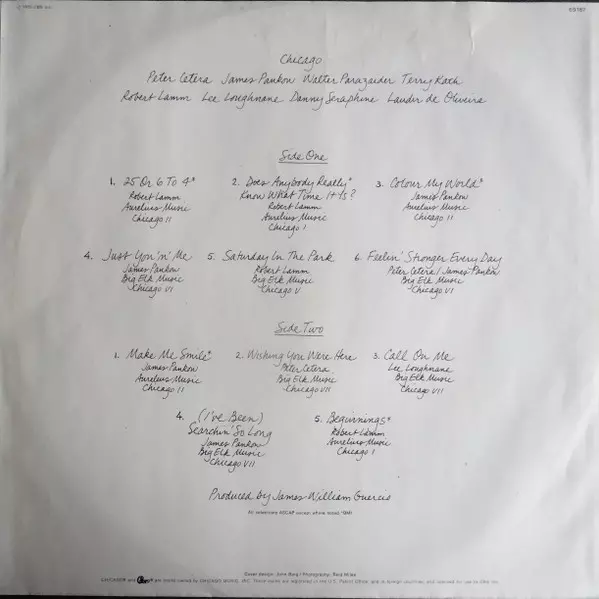 Chicago
Peter Cetera James Pankow Walter Parazaider Terry Kath
Robert Lamm Lee Loughnane Danny Seraphine Laudir de Oliveira
Side One
1. 25 Or 6 To 4*
Robert Lamm
Aurelius Music
Chicago II
2. Does Anybody Really*
Know What Time It Is?
Robert Lamm
Aurelius Music
Chicago I
3. Colour My World*
James Pankow
Aurelius Music
Chicago II
4. Just You 'n' Me
James Pankow
Big Elk Music
Chicago VI
5. Saturday In The Park
Robert Lamm
Big Elk Music
Chicago V
6. Feelin' Stronger Every Day
Peter Cetera/James Pankow
Big Elk Music
Chicago VI
Side Two
1. Make Me Smile*
James Pankow
Aurelius Music
Chicago II
2. Wishing You Were Here
Peter Cetera
Big Elk Music
Chicago VII
3. Call On Me
Lee Loughnane
Big Elk Music
Chicago VII
4. (I've Been)
Searchin' So Long
James Pankow
Big Elk Music
Chicago VII
5. Beginnings*
Robert Lamm
Aurelius Music
Chicago I
Produced by James William Guercio
All selections ASCAP except where noted *BMI
Cover design: John Berg / Photography: Reid Miles